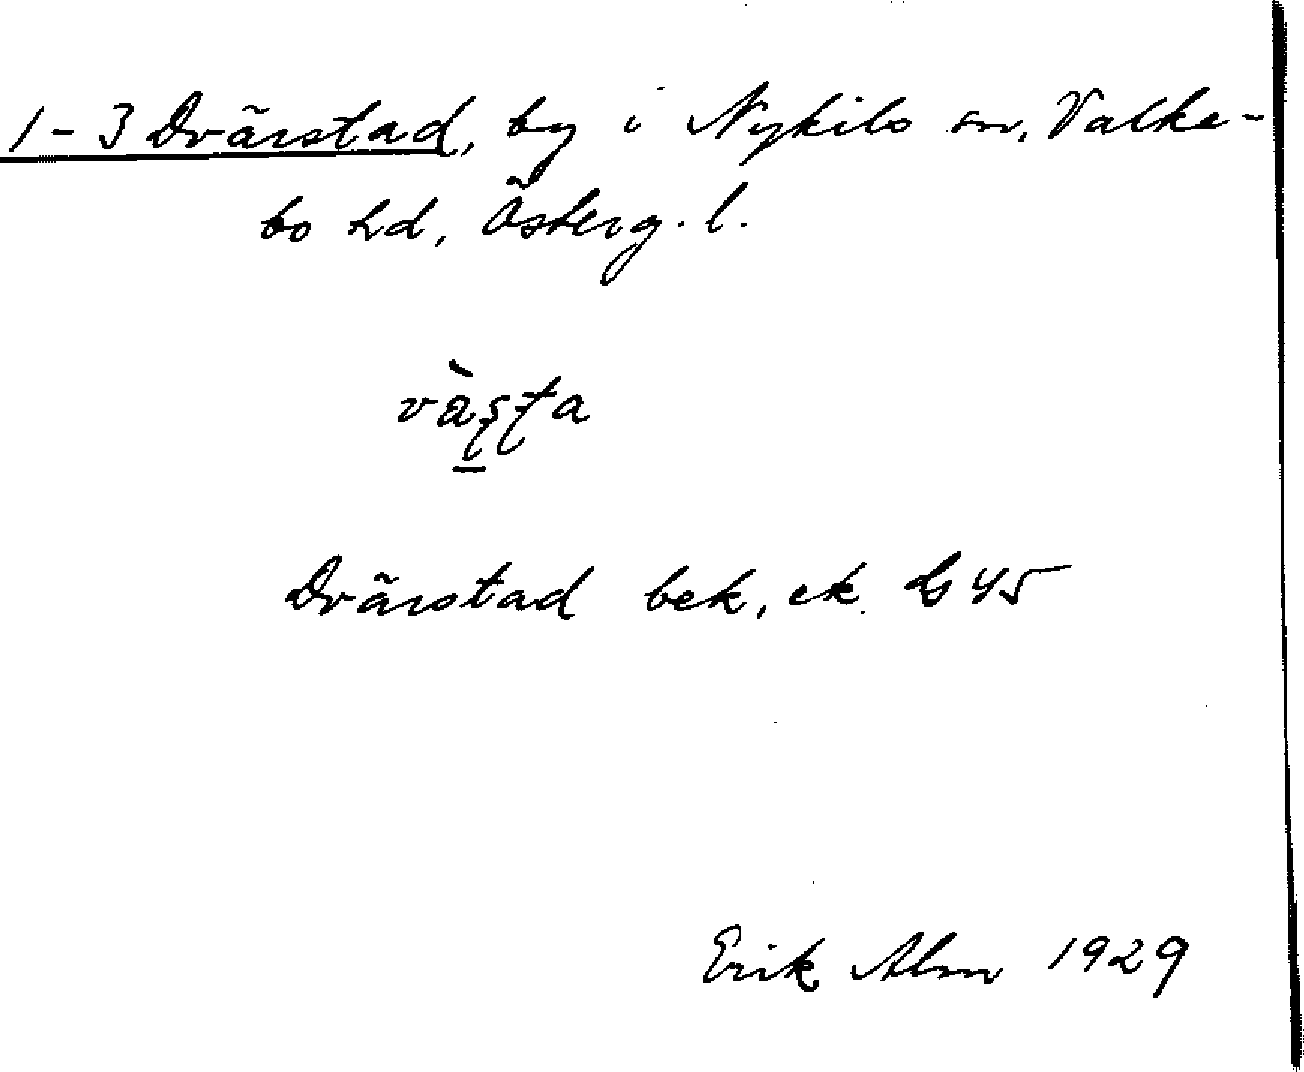 1-3 Dvärstad, by i Nykilo sn, Valke-
bo hd, Österg. l.
Dvärstad bek, ek. G 45
Erik Alm 1929